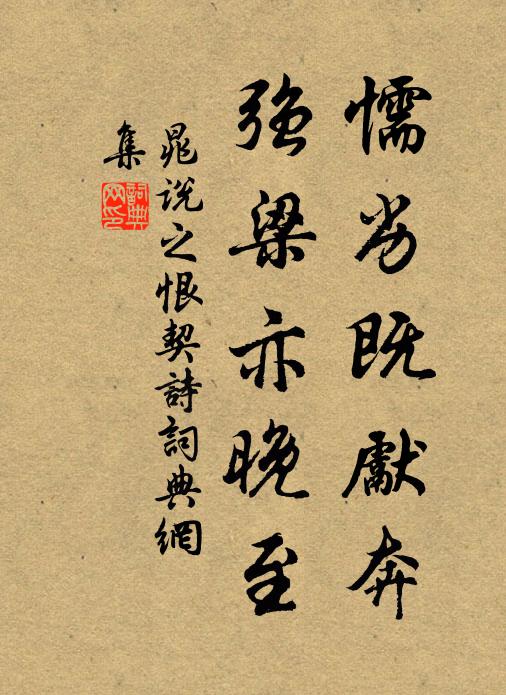 懦劣既獻奔
強梁亦晚至
晁說之恨契詩詞典網
集
詞典網印